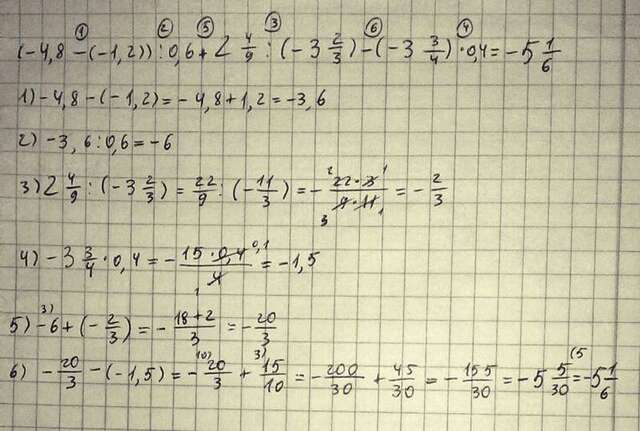 ① ② ⑤ ③ ⑥ ④
(-4,8-(-1,2)):0,6+2 4/9:(-3 2/3)-(-3 3/4)·0,4=-5 1/6
1)-4,8-(-1,2)=-4,8+1,2=-3,6
2)-3,6:0,6=-6
3)2 4/9:(-3 2/3)=22/9:(-11/3)=-22·3/9·11=-2/3
4)-3 3/4·0,4=-15·0,4/4=-1,5
5)-6+(-2/3)=-18+2/3=-20/3
6) -20/3-(-1,5)=-20/3+15/10=-200/30+45/30=-155/30=-5 5/30=-5 1/6